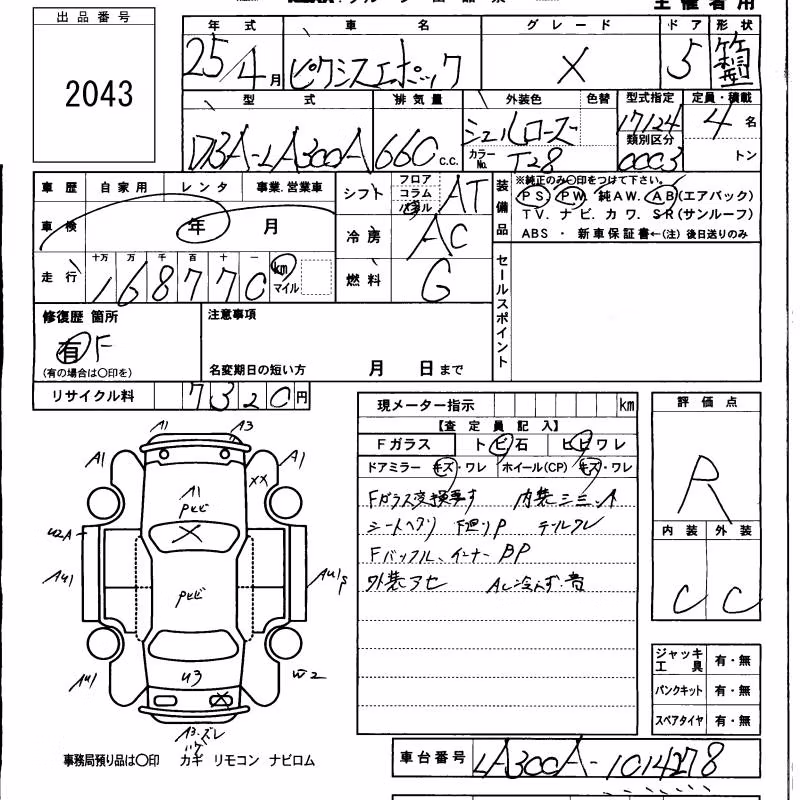 主催者用
出品番号
2043
年式 車名 グレード ドア 形状
25/4月 ピクシスエポック X 5 箱型
型式 排気量 外装色 色替 型式指定 定員・積載
DBA-LA300A 660 c.c. シェルローズ 17124 4 名
カラーNo. T28 類別区分 0003 トン
車歴 自家用 レンタ 事業.営業車
車検 年 月
走行 十万 万 千 百 十 一 km マイル
168770
シフト フロア コラム パネル AT
冷房 AC
燃料 G
装備品
※純正のみ〇印をつけて下さい。
PS. PW. 純AW. AB(エアバック)
TV. ナビ. カワ. SR(サンルーフ)
ABS ・ 新車保証書←(注) 後日送りのみ
セールスポイント
修復歴 箇所
有 F
(有の場合は〇印を)
注意事項
名変期日の短い方 月 日まで
リサイクル料 7320円
現メーター指示 km
【査定員記入】
Fガラス トビ石 ヒビワレ
ドアミラー キズ・ワレ ホイール(CP) キズ・ワレ
Fガラス交換要す 内装シミ
シートヘタリ F廻りP
Fバッフル、インナーBP
外装アセ AC冷えず・音
評価点
R
内装 外装
C C
ジャッキ 工具 有・無
パンクキット 有・無
スペアタイヤ 有・無
A1 A3
A1 XX A1
A1
Pヒビ
U2A
X
AU1 Pヒビ AU1P
AU1 U3 W2
X
A3・ズレ
事務局預り品は〇印 カギ リモコン ナビロム
車台番号 LA300A-1014278